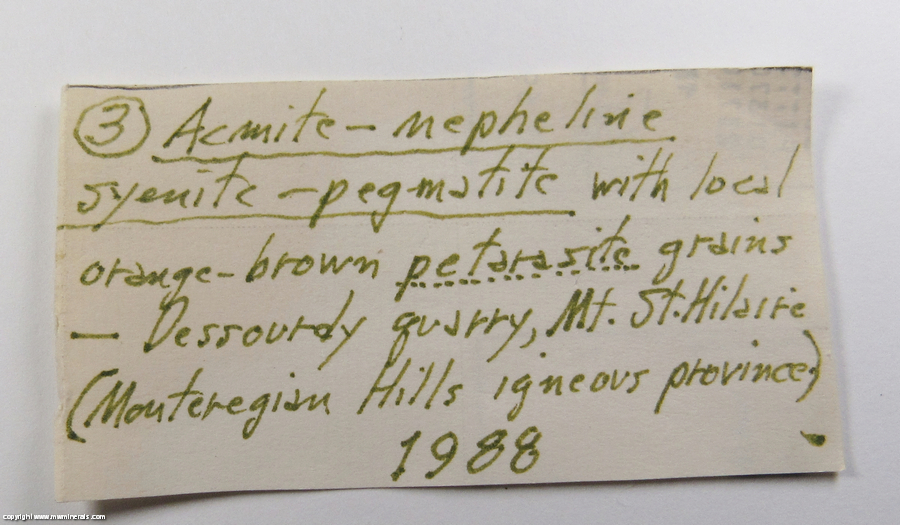 ③ Acmite-nepheline
syenite-pegmatite with local
orange-brown petarasite grains
— Dessourdy quarry, Mt. St. Hilaire
(Monteregian Hills igneous province)
1988
copyright www.mwminerals.com